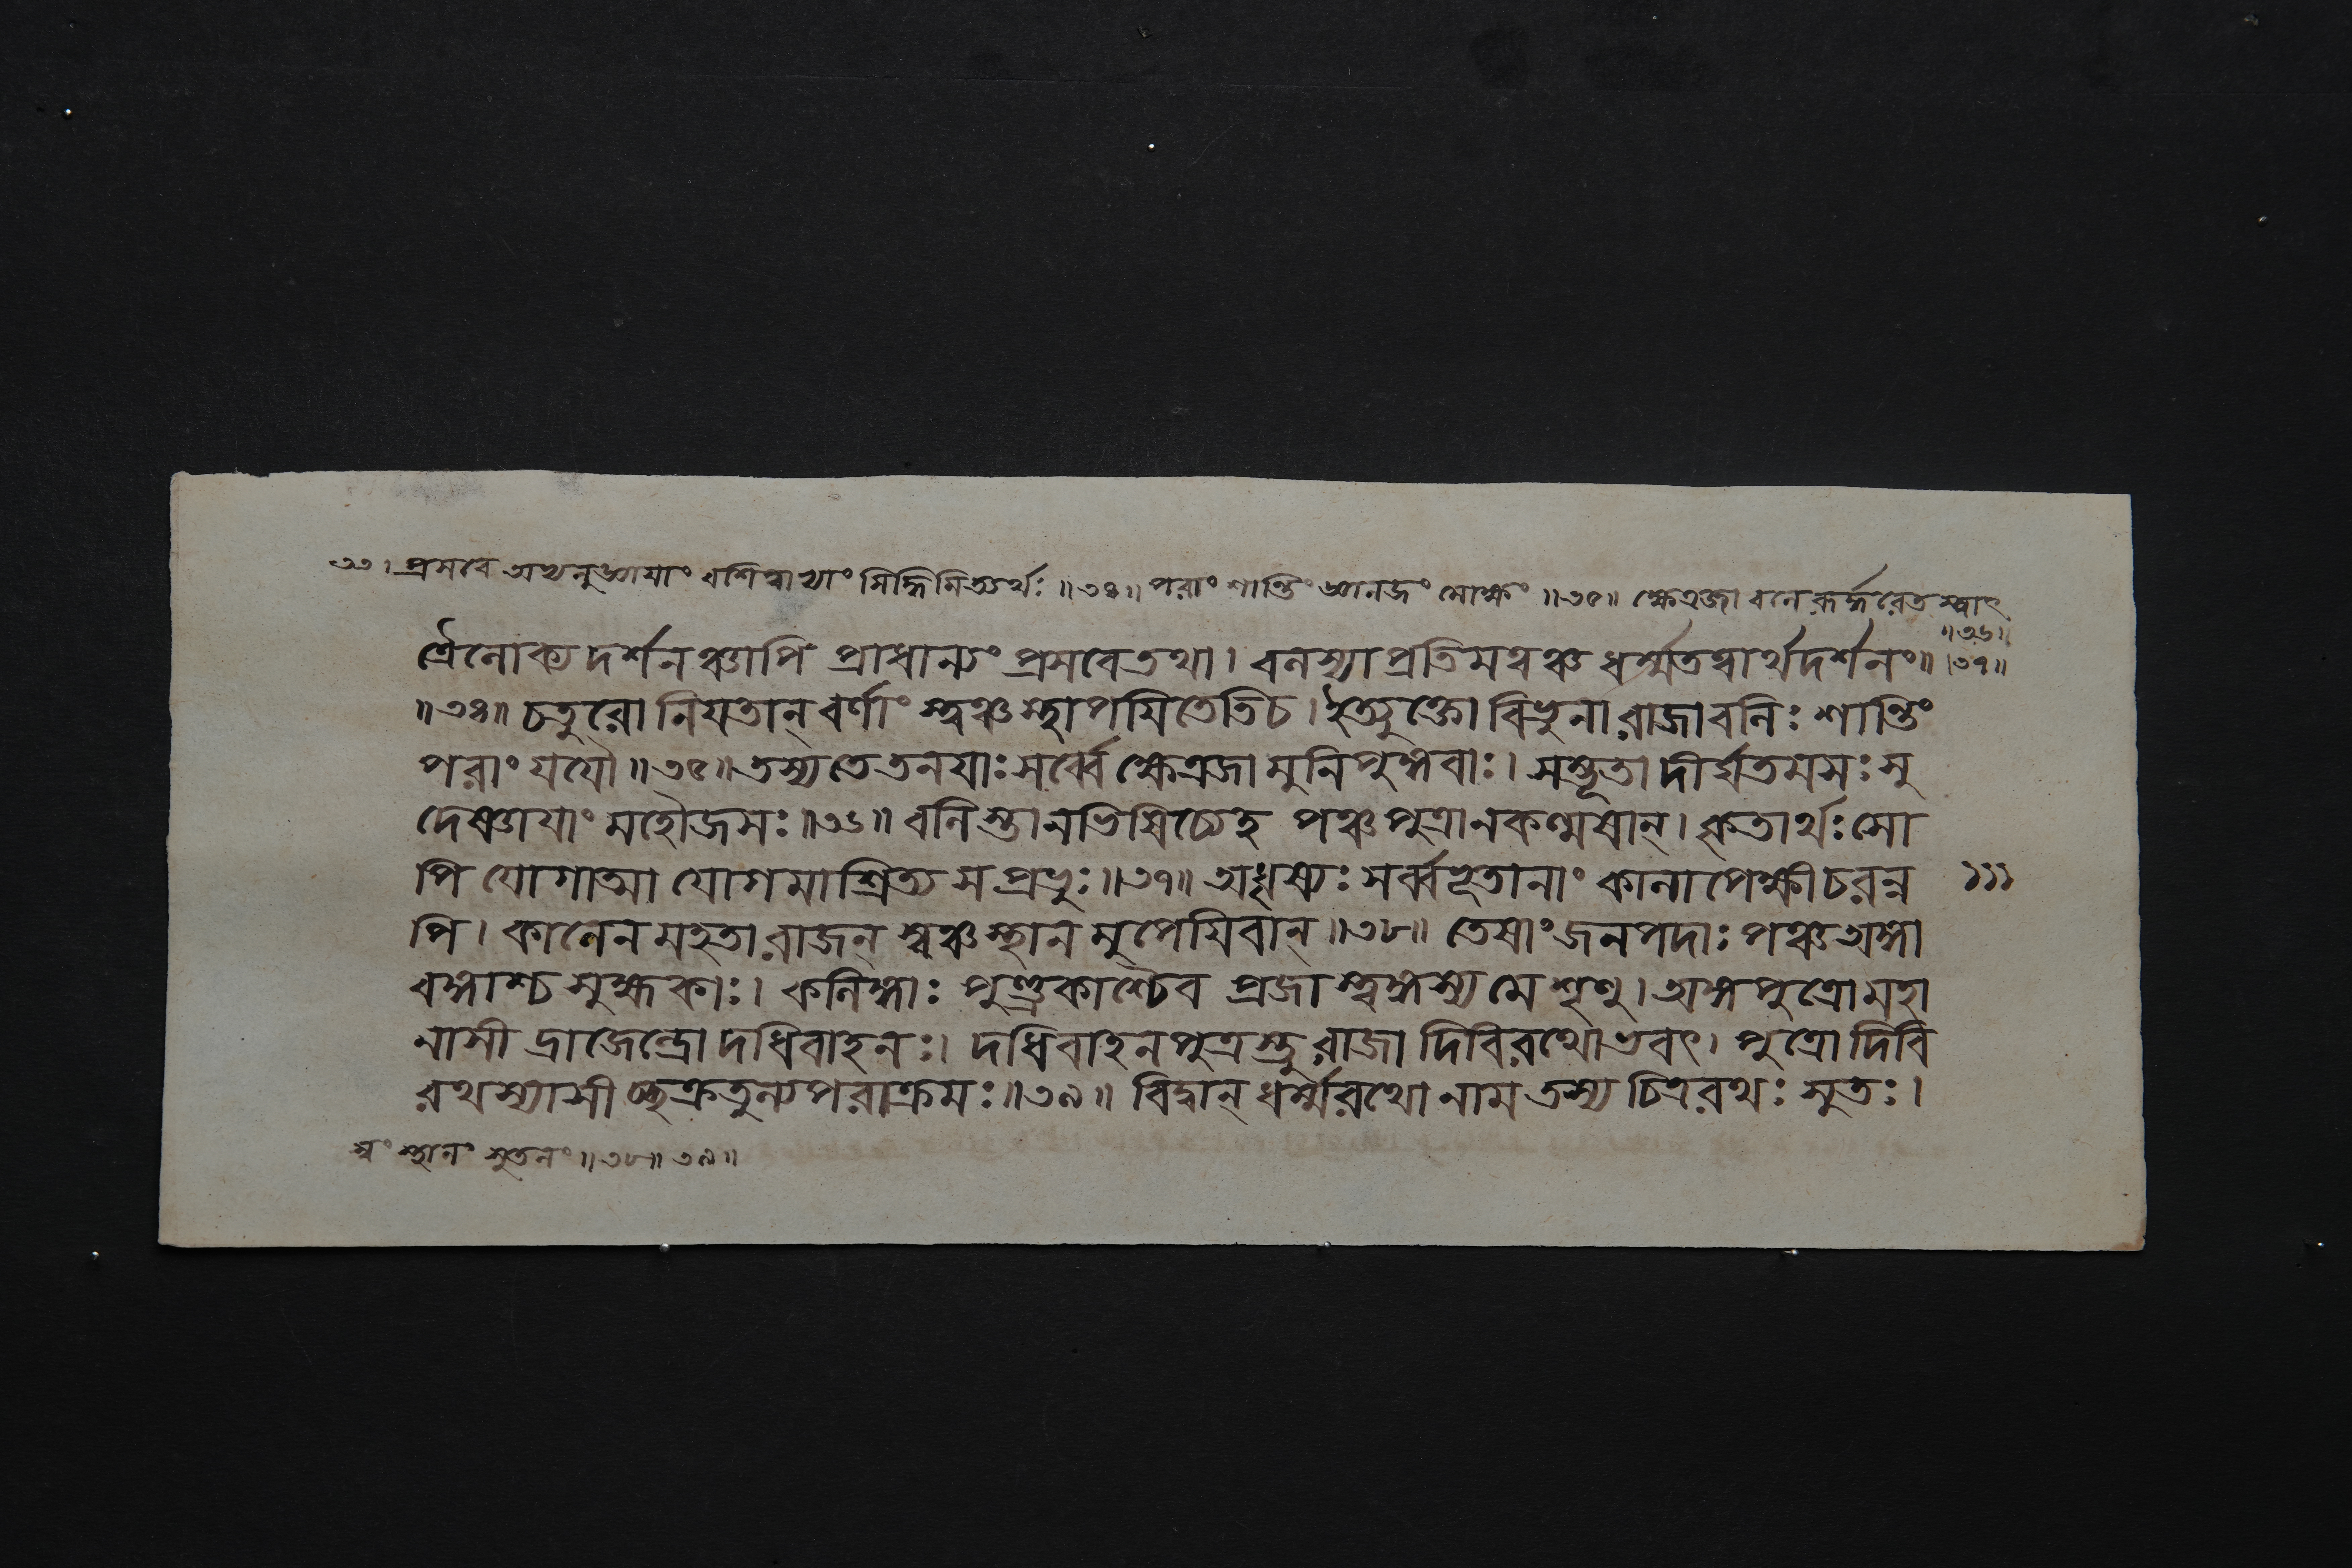 ৩৩। প্রসবে অভ্যনুজ্ঞায়াং বশিত্বাখ্যাং সিদ্ধিমিত্যর্থঃ ॥৩৪॥ পরাং শান্তিং জ্ঞানজং মোক্ষং ॥৩৫॥ ক্ষেত্রজা বলেরূর্দ্ধরেতস্ত্বাৎ
॥৩৬॥
ত্রৈলোক্য দর্শনঞ্চাপি প্রাধান্যং প্রসবে তথা। বলস্যাপ্রতিমত্বঞ্চ ধর্ম্মতত্বার্থদর্শনং॥ ।৩৭॥
॥৩৪॥ চতুরো নিয়তান্ বর্ণাং স্ত্বঞ্চ স্থাপয়িতেতি চ। ইত্যুক্তো বিভুনা রাজা বলিঃ শান্তিং
পরাং যযৌ ॥৩৫॥ তস্য তে তনয়াঃ সর্ব্বে ক্ষেত্রজা মুনিপুঙ্গবাঃ। সম্ভূতা দীর্ঘতমসঃ সু
দেষ্ণায়াং মহৌজসঃ ॥৩৬॥ বলি স্তানভিষিচ্যেহ পঞ্চ পুত্রানকল্মষান্। কৃতার্থঃ সো
পি যোগাত্মা যোগমাশ্রিত্য স প্রভুঃ ॥৩৭॥ অধৃষ্যঃ সর্ব্বভূতানাং কালাপেক্ষী চরন্ন
১১১
পি। কালেন মহতা রাজন্ স্বঞ্চ স্থান মুপেয়িবান্ ॥৩৮॥ তেষাং জনপদাঃ পঞ্চ অঙ্গা
বঙ্গাশ্চ সুহ্মকাঃ। কলিঙ্গাঃ পুণ্ড্রকাশ্চৈব প্রজা স্ত্বঙ্গস্য মে শৃণু। অঙ্গপুত্রো মহা
নাসী দ্রাজেন্দ্রো দধিবাহনঃ। দধিবাহনপুত্রস্তু রাজা দিবিরথোভবৎ। পুত্রো দিবি
রথস্যাসী চ্ছক্রতুল্যপরাক্রমঃ ॥৩৯॥ বিদ্বান্ ধর্ম্মরথো নাম তস্য চিত্ররথঃ সুতঃ।
স্বং স্থানং সুতলং ॥৩৮॥ ৩৯॥